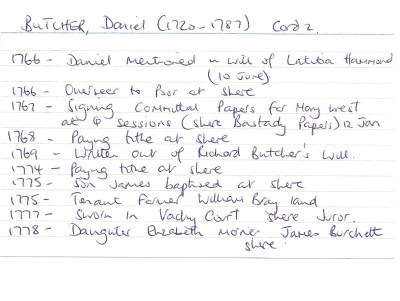 BUTCHER, Daniel (1720-1787) Card 2.
1766 - Daniel Mentioned in Will of Latitia Hammond
(10 June)
1766 - Overseer to Poor at Shere
1767 - Signing Committal Papers for Mary West
at Q Sessions (Shere Bastady Papers) 12 Jan
1768 - Paying tithe at Shere
1769 - Written out of Richard Butcher's Will.
1774 - Paying tithe at Shere
1775 - Son James baptised at Shere
1775 - Tenant Farmer William Bray land
1777 - Sworn in Vachy Court Shere Juror.
1778 - Daughter Elizabeth Marries James Burchett
Shere.